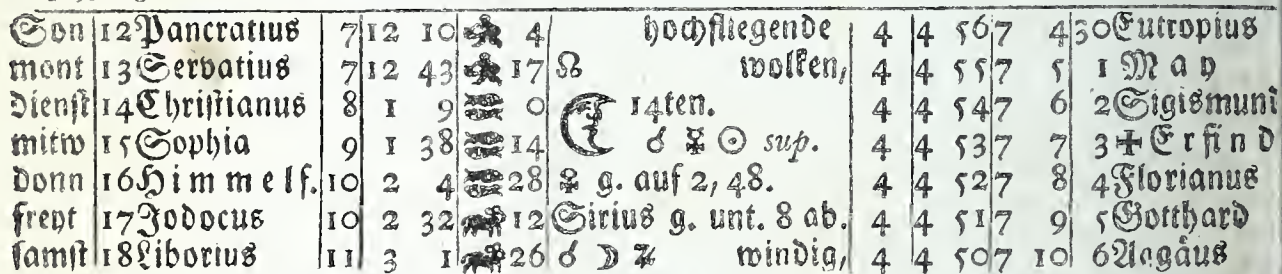 Son 12 Pancratius 7 12 10 4 hochfliegende 4 4 56 7 4 30 Eutropius
mont 13 Servatius 7 12 43 17 ☊ wolken, 4 4 55 7 5 1 May
dienst 14 Christianus 8 1 9 0 ☾ 14ten. 4 4 54 7 6 2 Sigismund
mittw 15 Sophia 9 1 38 14 ☌ ☿ ☉ sup. 4 4 53 7 7 3 ✠ Erfind
donn 16 Himmelf. 10 2 4 28 ♀ g. auf 2, 48. 4 4 52 7 8 4 Florianus
freyt 17 Jodocus 10 2 32 12 Sirius g. unt. 8 ab. 4 4 51 7 9 5 Gotthard
samst 18 Liborius 11 3 1 26 ☌ ☽ ♃ windig, 4 4 50 7 10 6 Aagäus